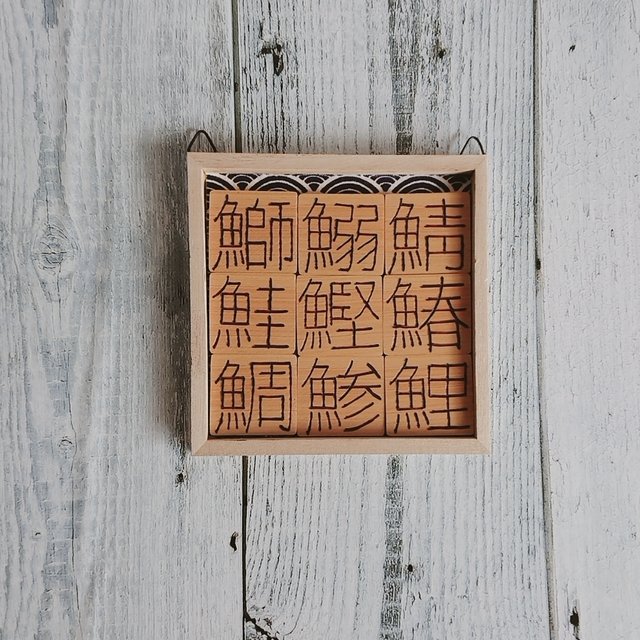 鰤鰯鯖
鮭鰹鰆
鯛鯵鯉